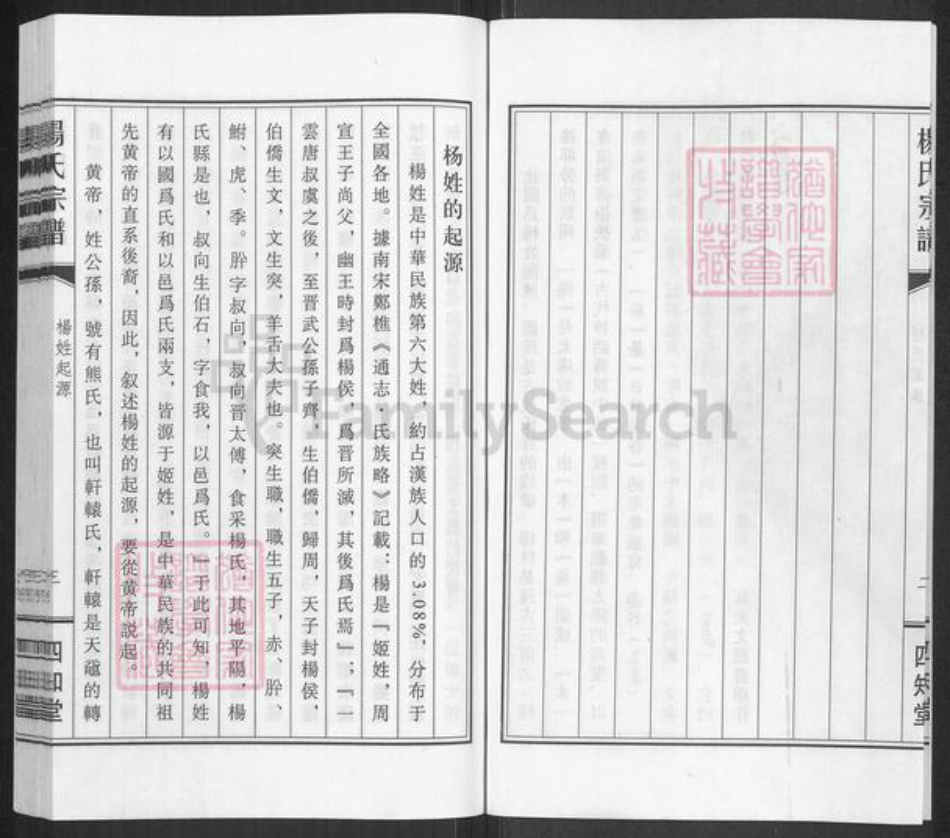 楊氏宗譜
二
四知堂
杨姓的起源
楊姓是中華民族第六大姓，約占漢族人口的3.08%，分布于
全國各地。據南宋鄭樵《通志·氏族略》記載：楊是『姬姓，周
宣王子尚父，幽王時封爲楊侯，爲晋所滅，其後爲氏焉』；『一
雲唐叔虞之後，至晋武公孫子齊，生伯僑，歸周，天子封楊侯，
伯僑生文，文生突，羊舌大夫也。突生職，職生五子，赤、肸、
鮒、虎、季。肸字叔向，叔向晋太傅，食采楊氏，其地平陽，楊
氏縣是也，叔向生伯石，字食我，以邑爲氏。』于此可知，楊姓
有以國爲氏和以邑爲氏兩支，皆源于姬姓，是中華民族的共同祖
先黄帝的直系後裔，因此，叙述楊姓的起源，要從黄帝説起。
黄帝，姓公孫，號有熊氏，也叫軒轅氏，軒轅是天黿的轉
楊氏宗譜
楊姓起源
三
四知堂
FamilySearch